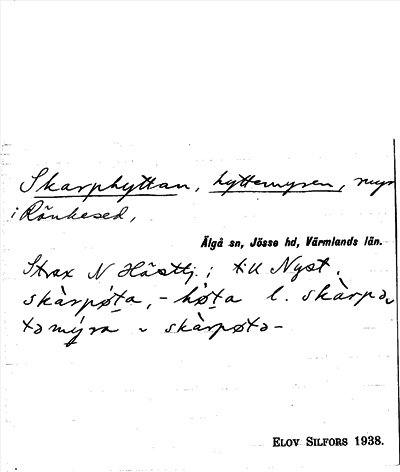 Skarphyttan, hyttemyren, myr
i Rönkesed,
Älgå sn, Jösse hd, Värmlands län.
Strax N Hästtj. i till Nyst.
skàrpøta, - høta l. skàrpø
tamýra ~ skàrpøta-
ELOV SILFORS 1938.